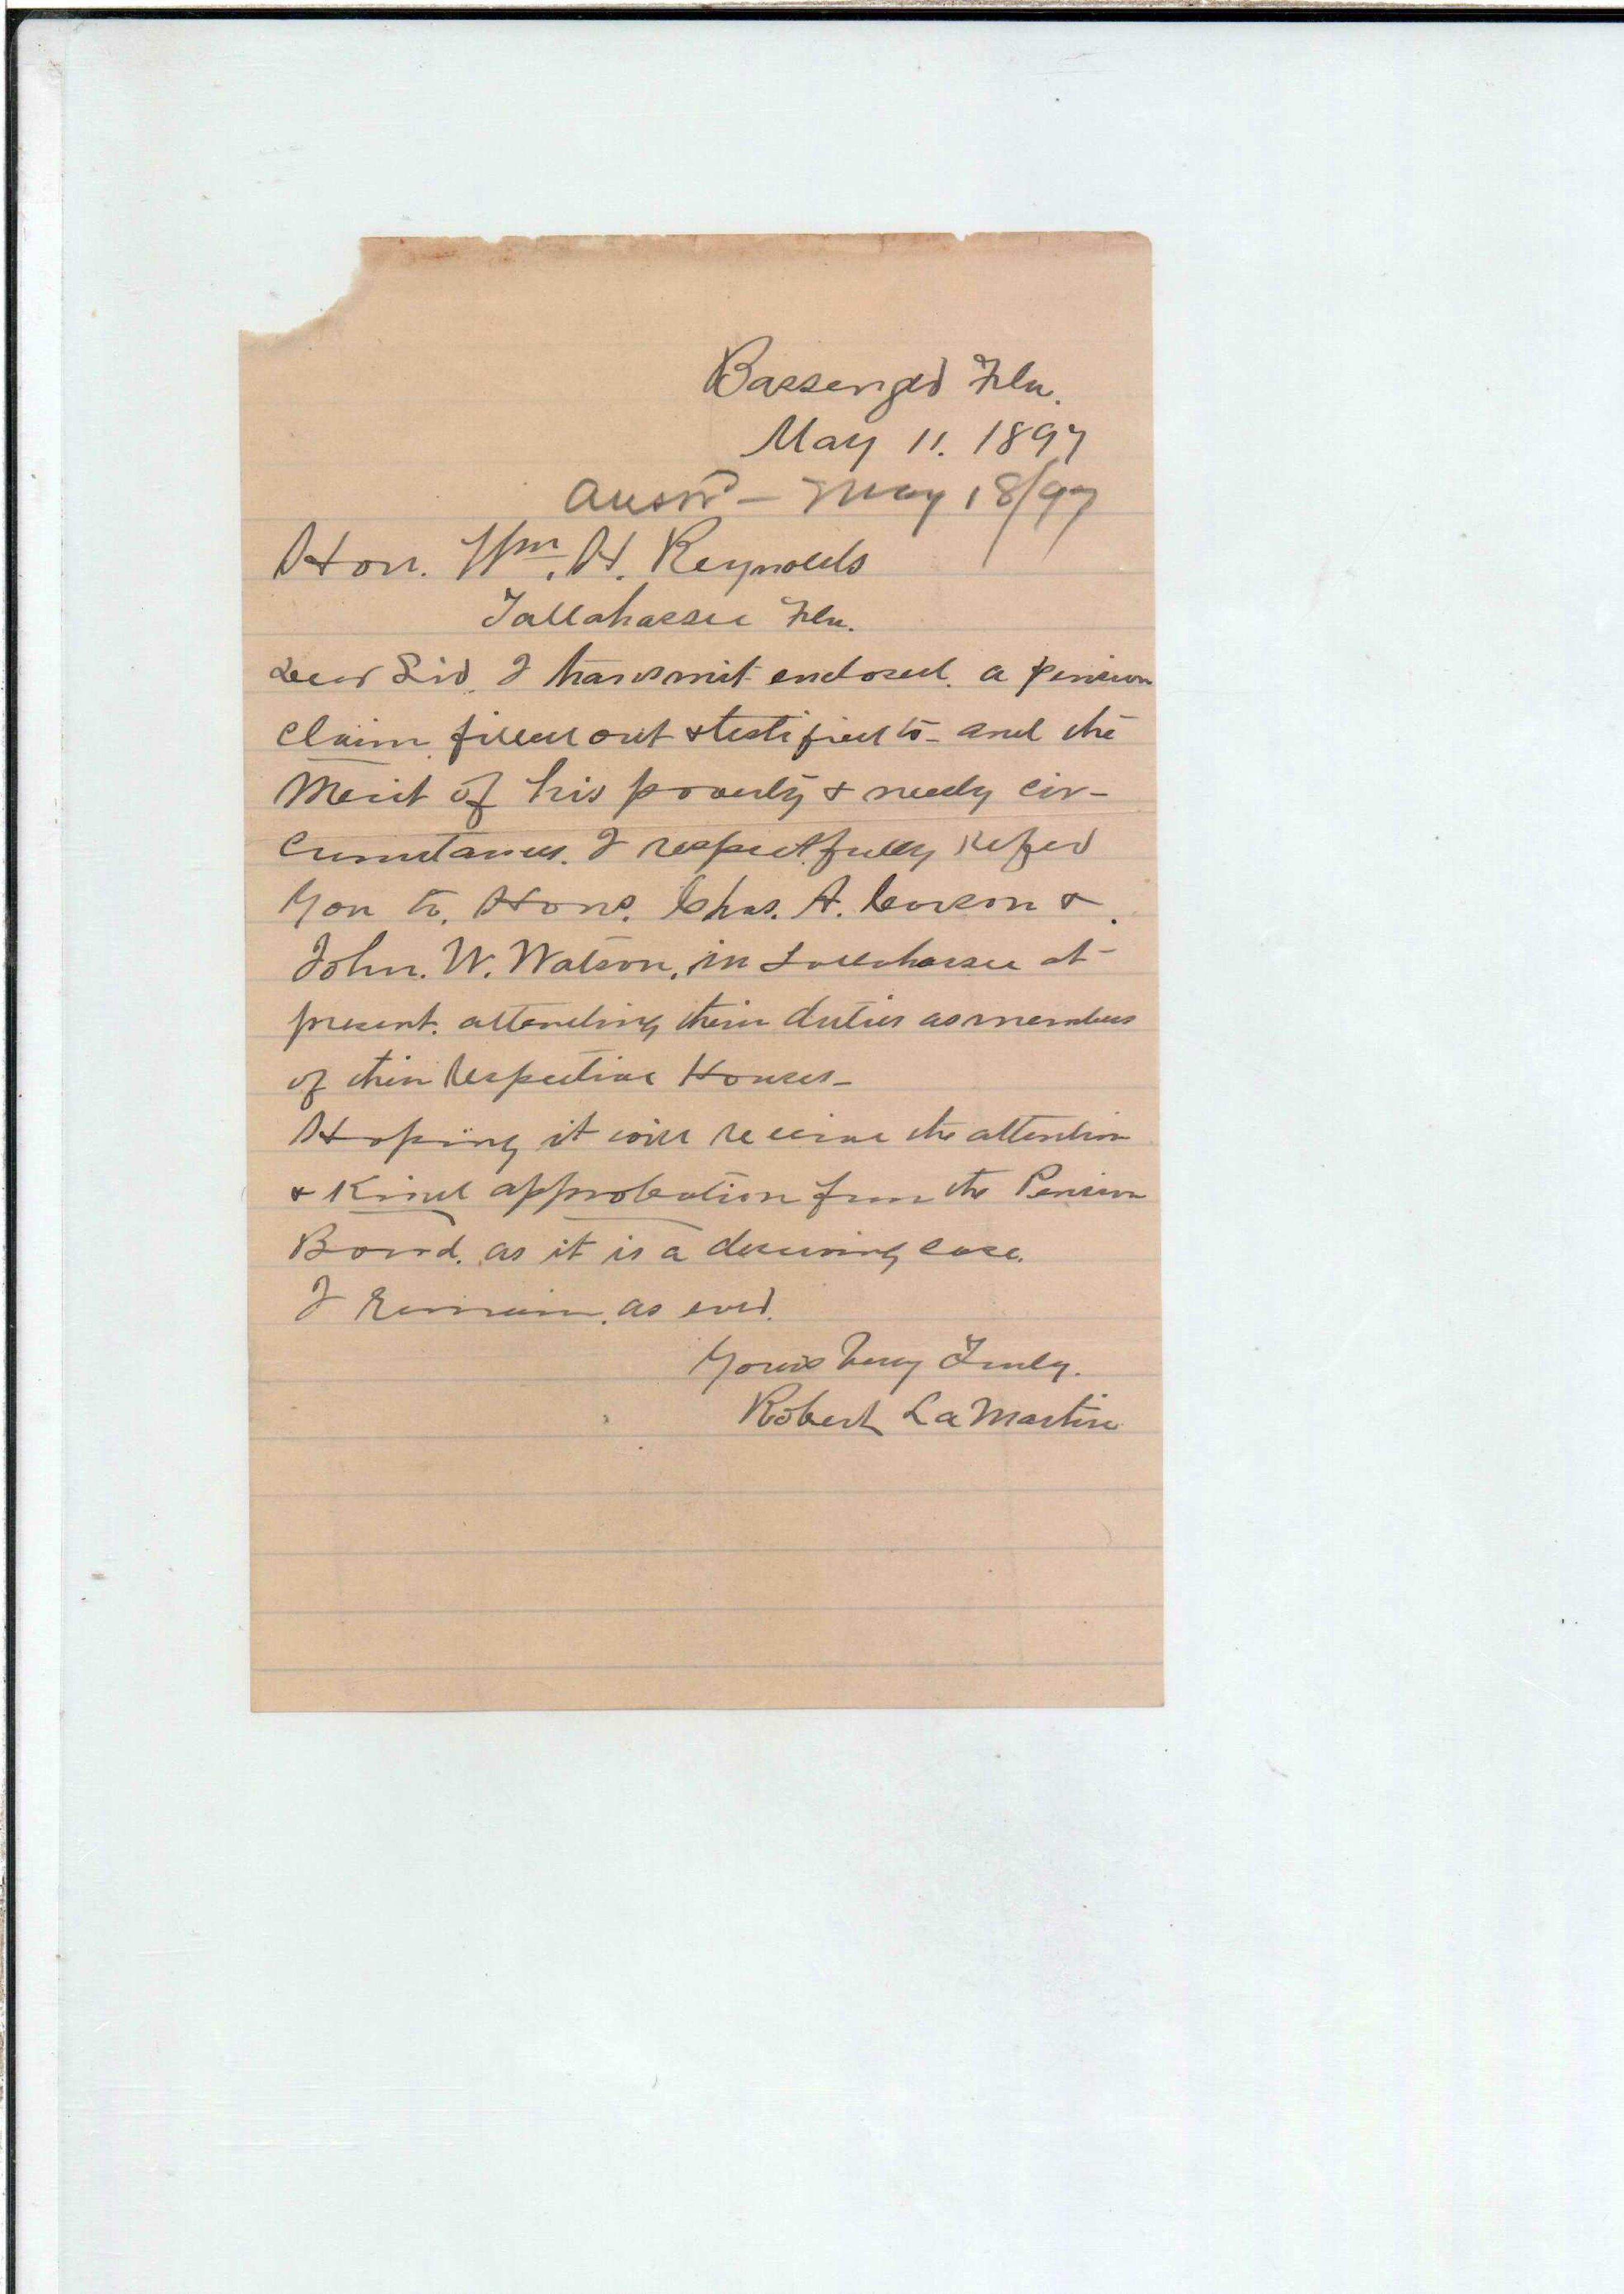 Bassenger Fla.
May 11. 1897
Answd — May 18/97
Hon. Wm. H. Reynolds
Tallahassee Fla.
Dear Sir, I transmit enclosed. a pension
claim filled out & testified to - and the
Merit of his poverty & needy cir-
cumstances. I respectfully Refer
You to. Hons. Chas. A. Carson &
John. W. Watson, in Tallahassee at
present. attending their duties as members
of their Respective Houses -
Hoping it will receive the attention
& Kind approbation from the Pension
Board. as it is a deserving case.
I Remain, as ever.
Yours Very Truly.
Robert La Martin